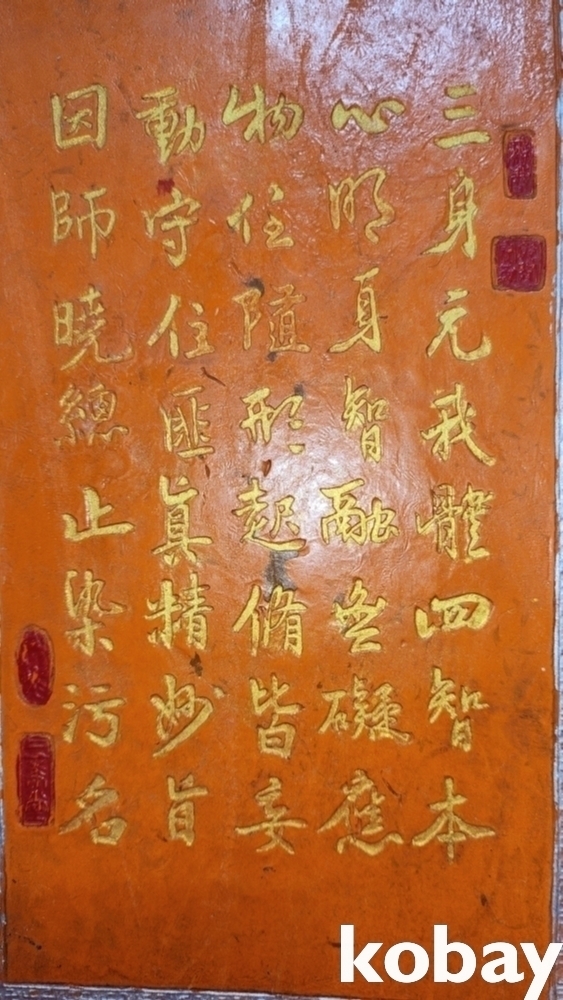 三身元我體四智本
心明身智融無礙應
物任隨形起脩皆妄
動守住匪眞精妙旨
因師曉總止染污名
kobay